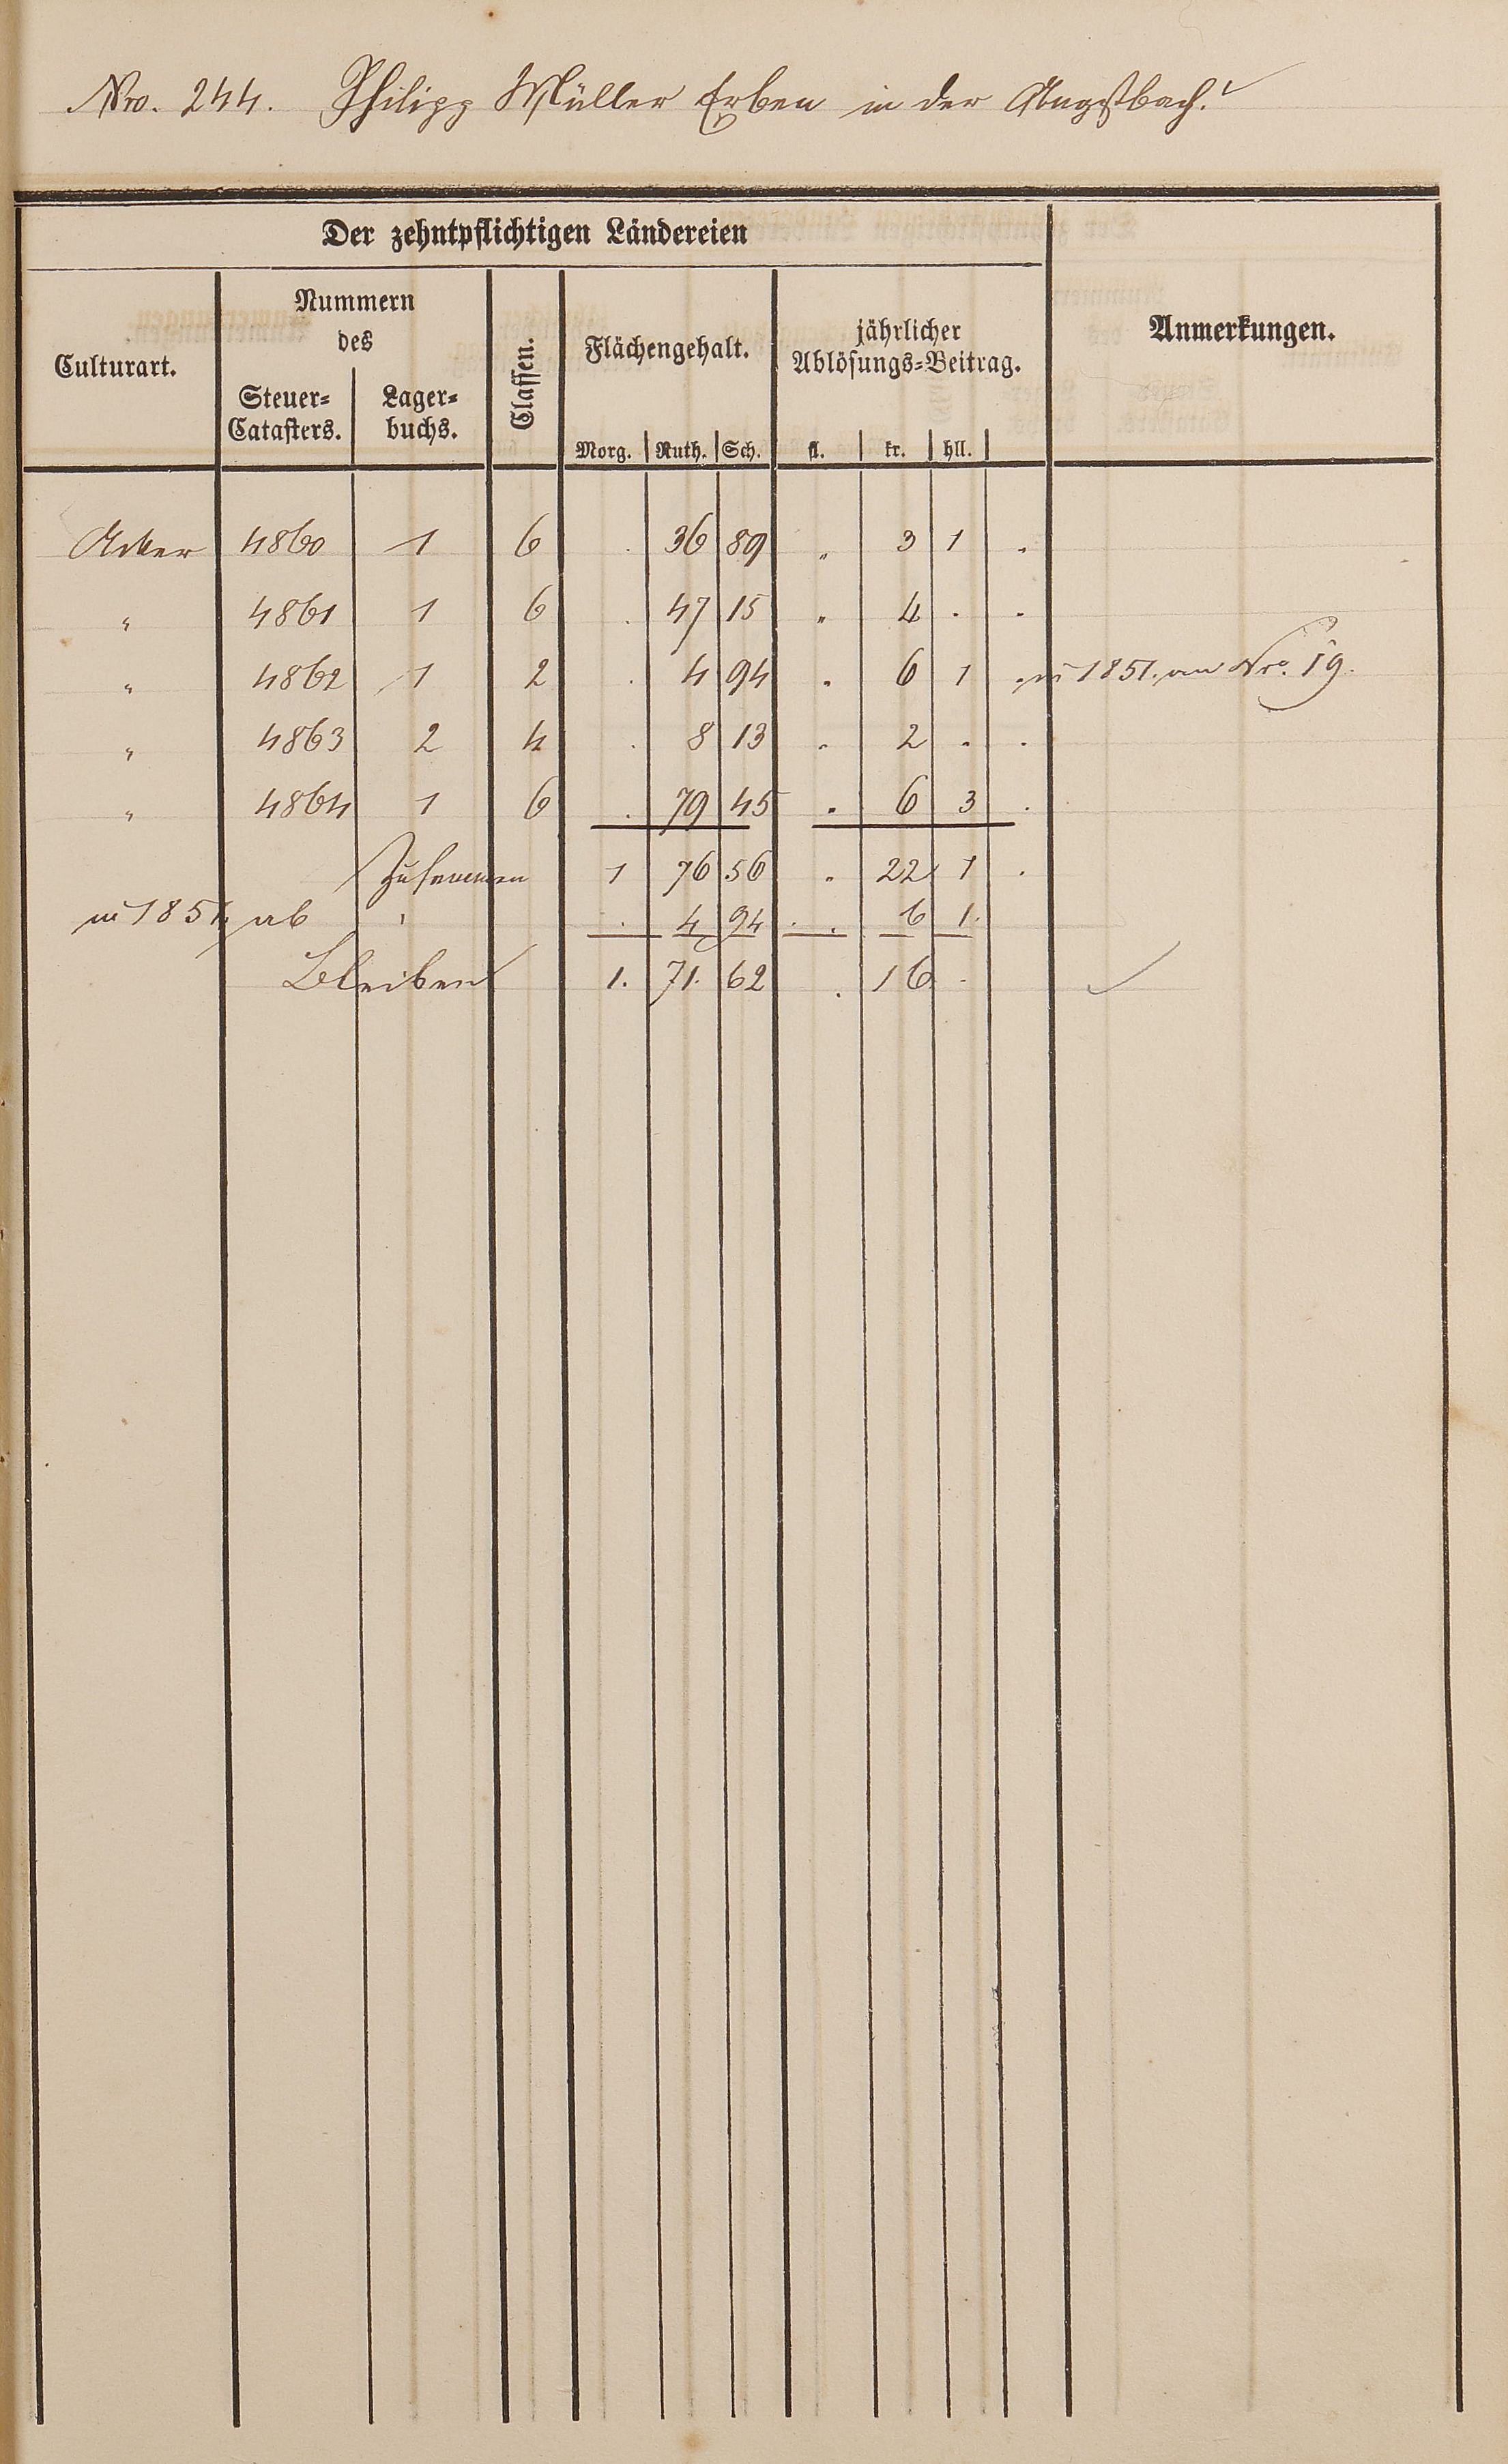 Nro. 244. Philipp Müller Erben in der Angstbach.
Der zehntpflichtigen Ländereien
Culturart.
Nummern
des
Steuer-
Catasters.
Lager-
buchs.
Classen.
Flächengehalt.
Morg. Ruth. Sch.
jährlicher
Ablösungs-Beitrag.
fl. kr. hll.
Anmerkungen.
Acker 4860 1 6 . 36 89 „ 3 1 .
„ 4861 1 6 . 47 15 „ 4 . .
„ 4862 1 2 . 4 94 „ 6 1 . 1851. an Nro. 19.
„ 4863 2 4 . 8 13 „ 2 . .
„ 4864 1 6 . 79 45 „ 6 3 .
Zusammen 1 76 56 „ 22 1 .
1851 ab . 4 94 . . 6 1.
Bleiben 1. 71. 62 . 16 -